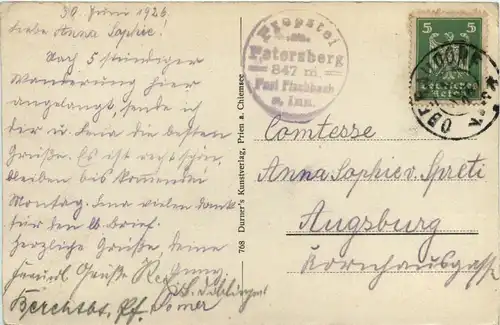 30. Juni 1926
Liebe Anna Sophie!
Nach 5 stündiger
Wanderung hier
angelangt, sende ich
dir u. Lena die besten
Grüße. Es ist recht schön,
bleiben bis kommenden
Montag. Lena vielen Dank
für den lb. Brief.
Herzliche Grüße, deine
Freundl. Grüße
Propstei
Petersberg
847 m
Post Fischbach
a. Inn.
768 Durner's Kunstverlag, Prien a. Chiemsee
5 5
Deutsches
Reich
OBERAUDORF
Comtesse
Anna Sophie v. Spreti
Augsburg
Kornhausgasse